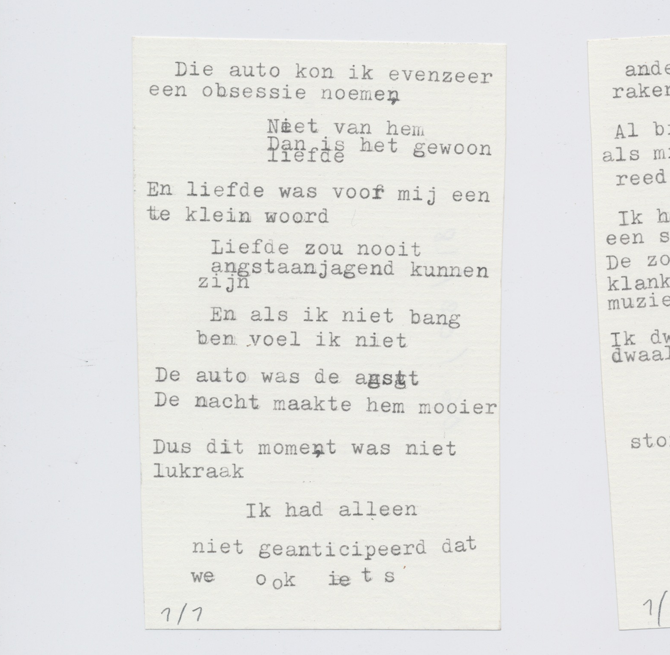 Die auto kon ik evenzeer
een obsessie noemen,
Niet van hem
Dan is het gewoon
liefde
En liefde was voor mij een
te klein woord
Liefde zou nooit
angstaanjagend kunnen
zijn
En als ik niet bang
ben voel ik niet
De auto was de angst
De nacht maakte hem mooier
Dus dit moment was niet
lukraak
Ik had alleen
niet geanticipeerd dat
we ook iets
1/1
ande
raken
Al b
als m
reed
Ik h
een s
De zo
klank
muzie
Ik dw
dwaal
sto
1/